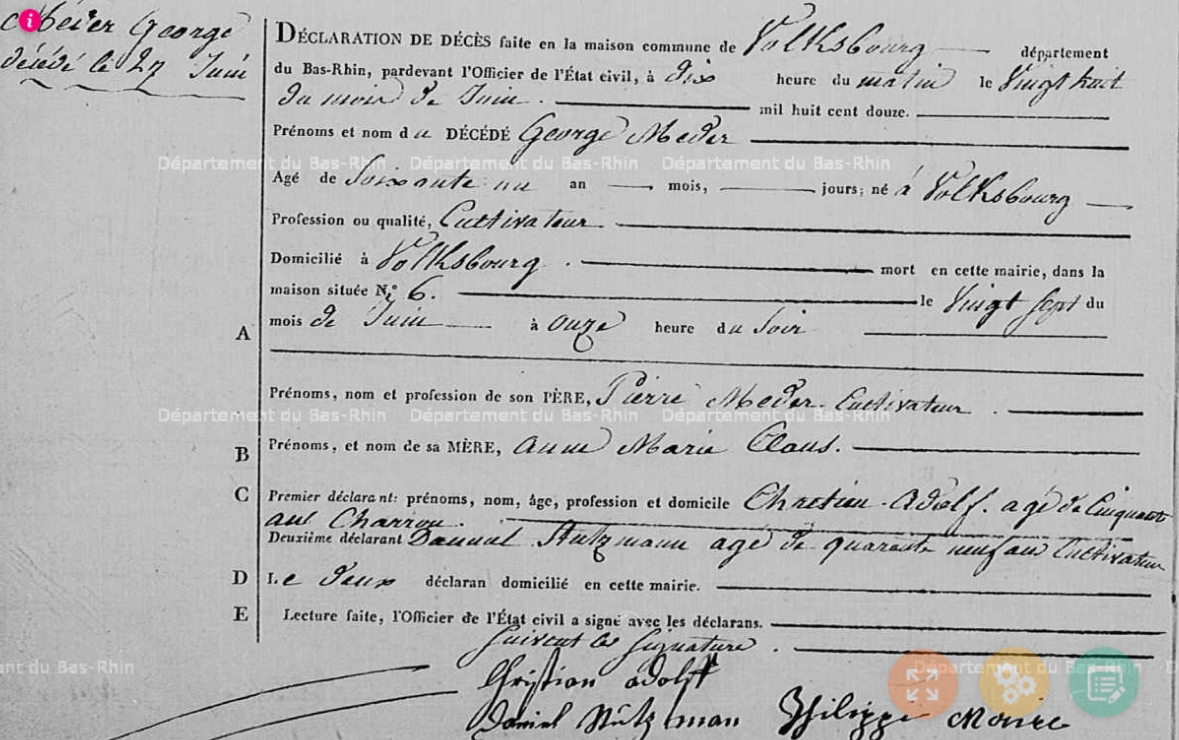 Meder George
décédé le 27 Juin
DÉCLARATION DE DÉCÈS faite en la maison commune de Volksbourg département
du Bas-Rhin, pardevant l'Officier de l'État civil, à dix heure du matin le Vingt huit
du mois de Juin. mil huit cent douze.
Prénoms et nom du DÉCÉDÉ George Meder
Département du Bas-Rhin Département du Bas-Rhin Département du Bas-Rhin
Agé de Soixante un an mois, jours; né à Volksbourg
Profession ou qualité, Cultivateur
Domicilié à Volksbourg. mort en cette mairie, dans la
maison située N.º 6. le Vingt Sept du
A mois de Juin à onze heure du Soir
Prénoms, nom et profession de son PÈRE, Pierre Meder. Cultivateur.
Département du Bas-Rhin Département du Bas-Rhin Département du Bas-Rhin
B Prénoms, et nom de sa MÈRE, Anne Marie Claus.
C Premier déclarant: prénoms, nom, âge, profession et domicile Chretien Adolf. agé de Cinquante
ans Charron.
Deuxième déclarant Daniel Stutzmann agé de quarante neuf an Cultivateur
D Le deux déclaran domicilié en cette mairie.
E Lecture faite, l'Officier de l'État civil a signé avec les déclarans.
Suivent les Signature.
ent du Bas-Rhin Département du Bas-Rhin
Christian Adolff
Daniel Stutzman Philippe